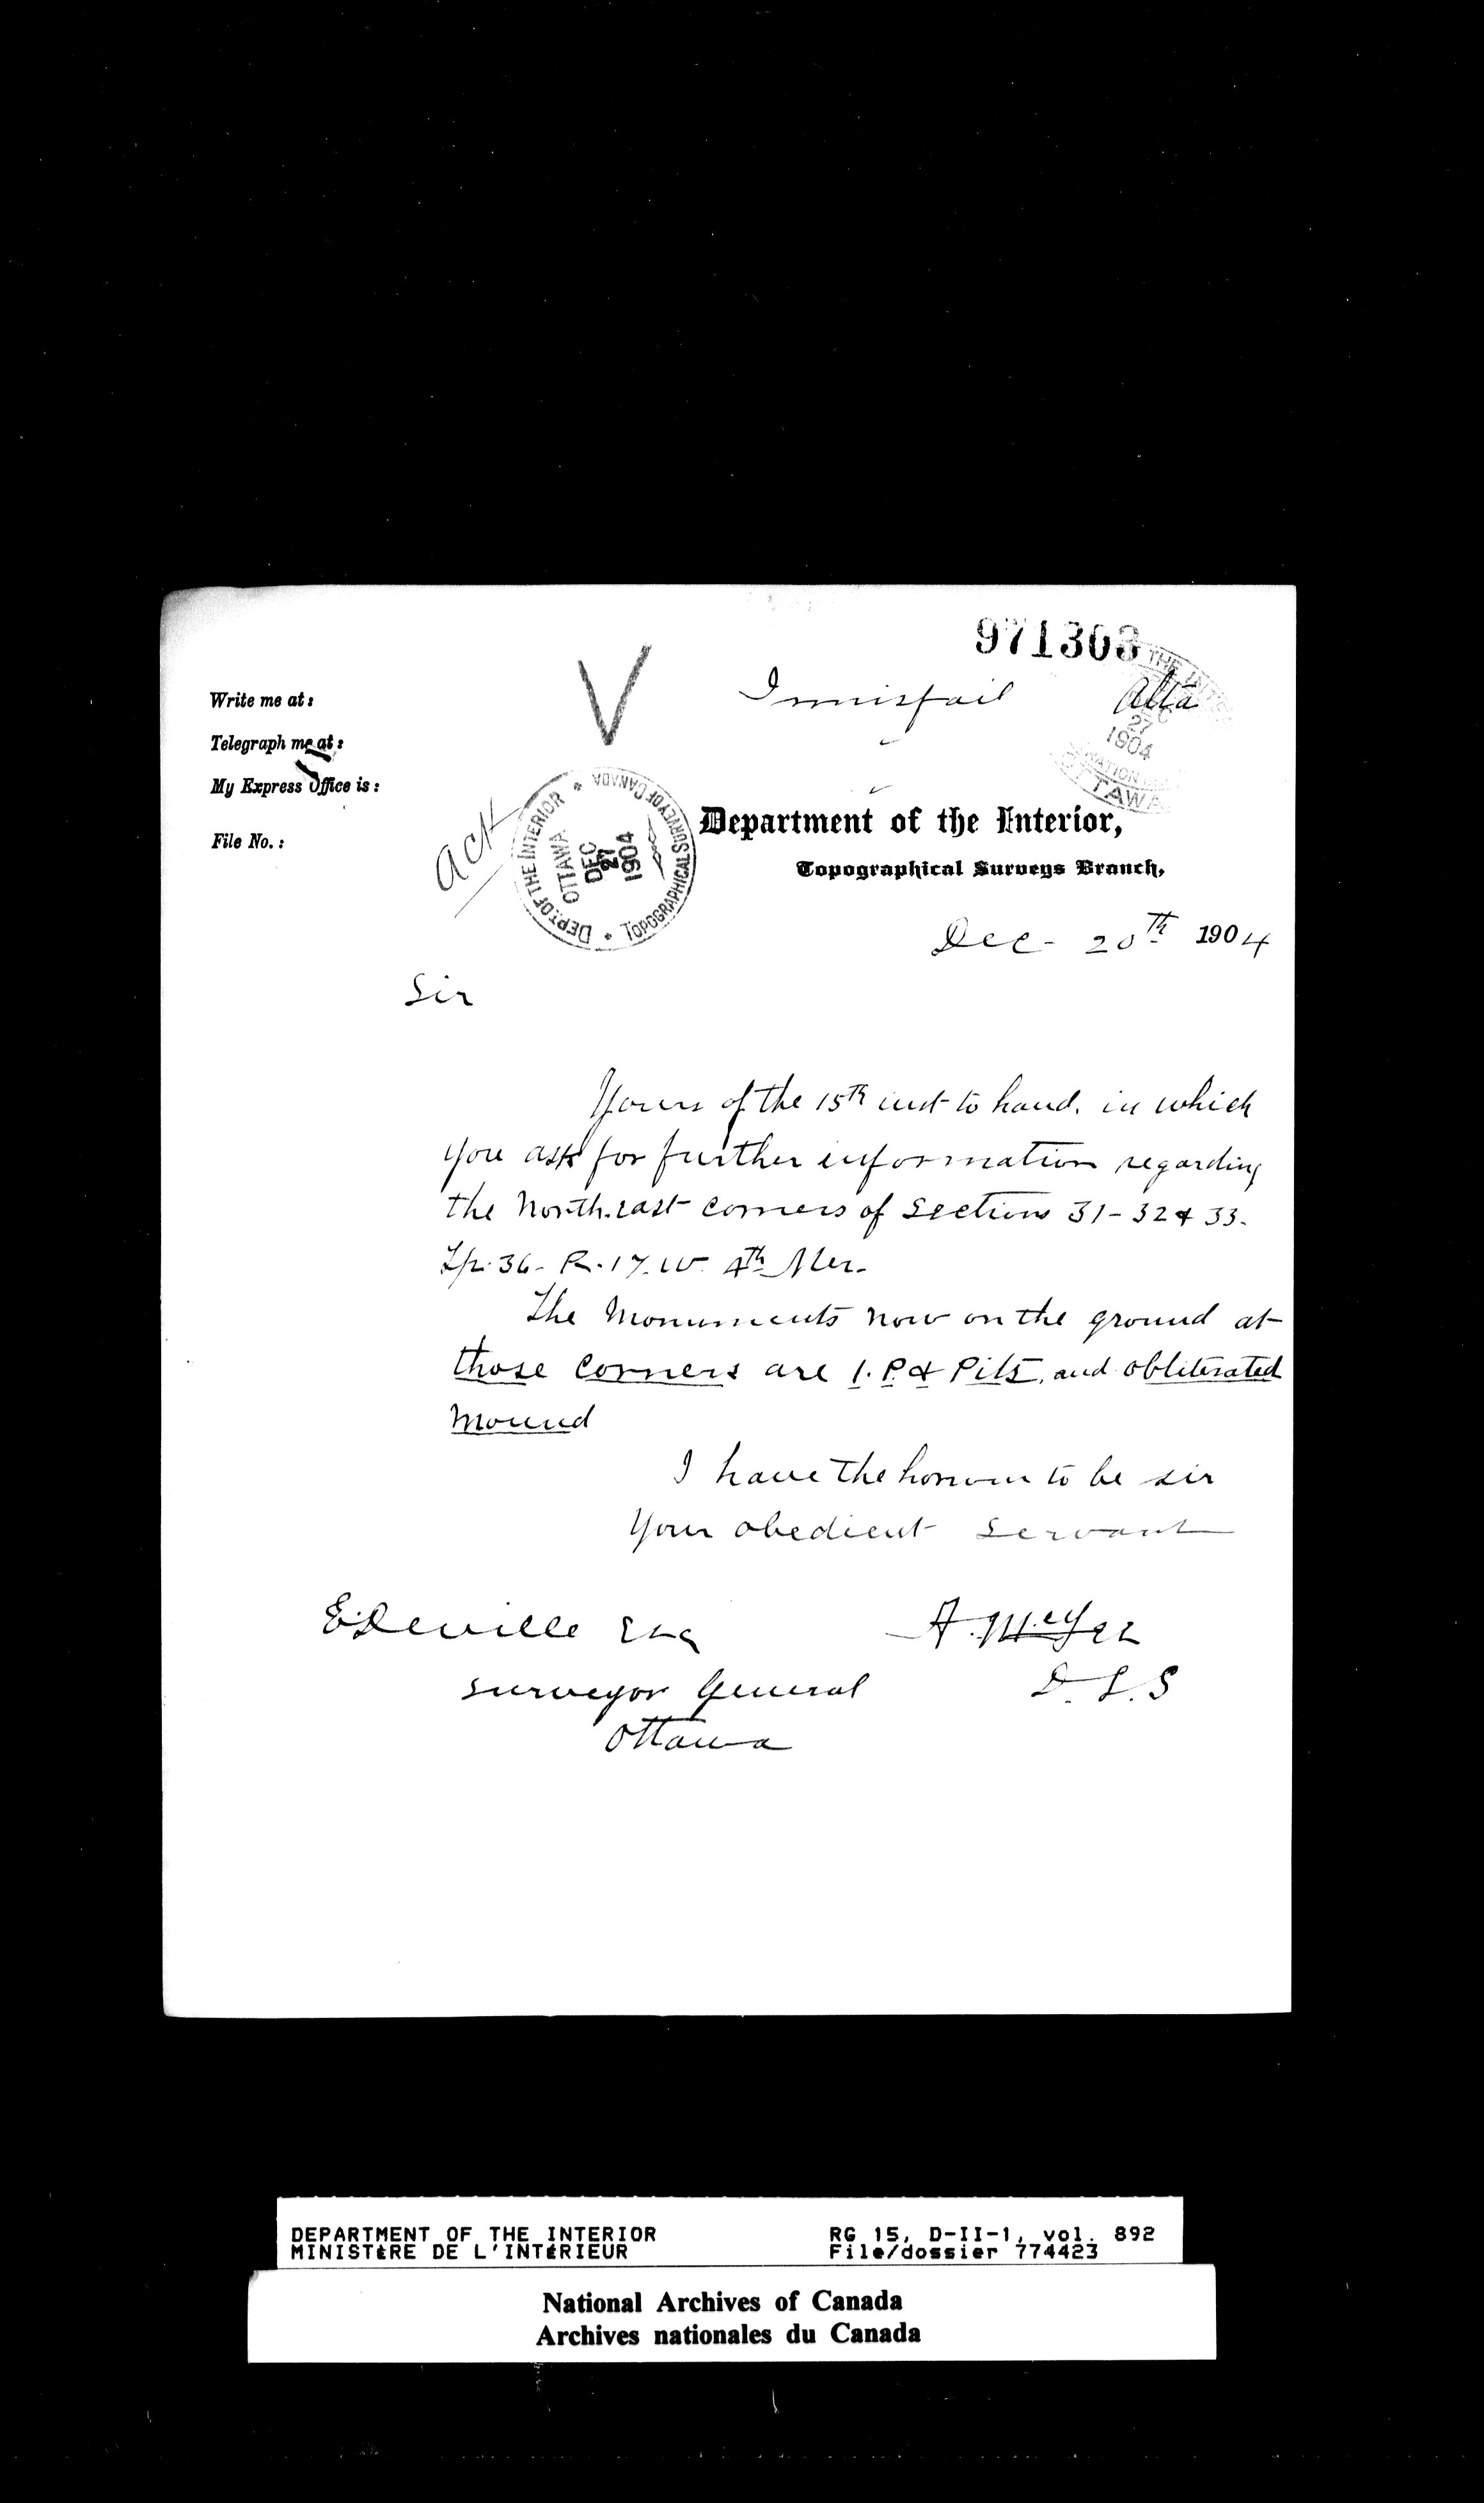 971303
Innisfail Alta
Write me at:
Telegraph me at:
My Express Office is:
File No.:
V
ack
DEPT. OF THE INTERIOR * TOPOGRAPHICAL SURVEY OF CANADA *
OTTAWA
DEC
27
1904
THE INTE
DEC
27
1904
OTTAWA
Department of the Interior,
Topographical Surveys Branch,
Dec - 20th 1904
Sir
Yours of the 15th inst to hand. in which
you ask for further information regarding
the North-east corners of Sections 31-32 & 33.
Tp. 36 - R. 17. W. 4th Mer.
The Monuments now on the ground at
those corners are I. P & Pits, and obliterated
Mound
I have the honour to be sir
Your obedient servant
E. Deville Esq
Surveyor General
Ottawa
A. McFee
D. L. S
DEPARTMENT OF THE INTERIOR
MINISTÈRE DE L'INTÉRIEUR
RG 15, D-II-1, vol. 892
File/dossier 774423
National Archives of Canada
Archives nationales du Canada